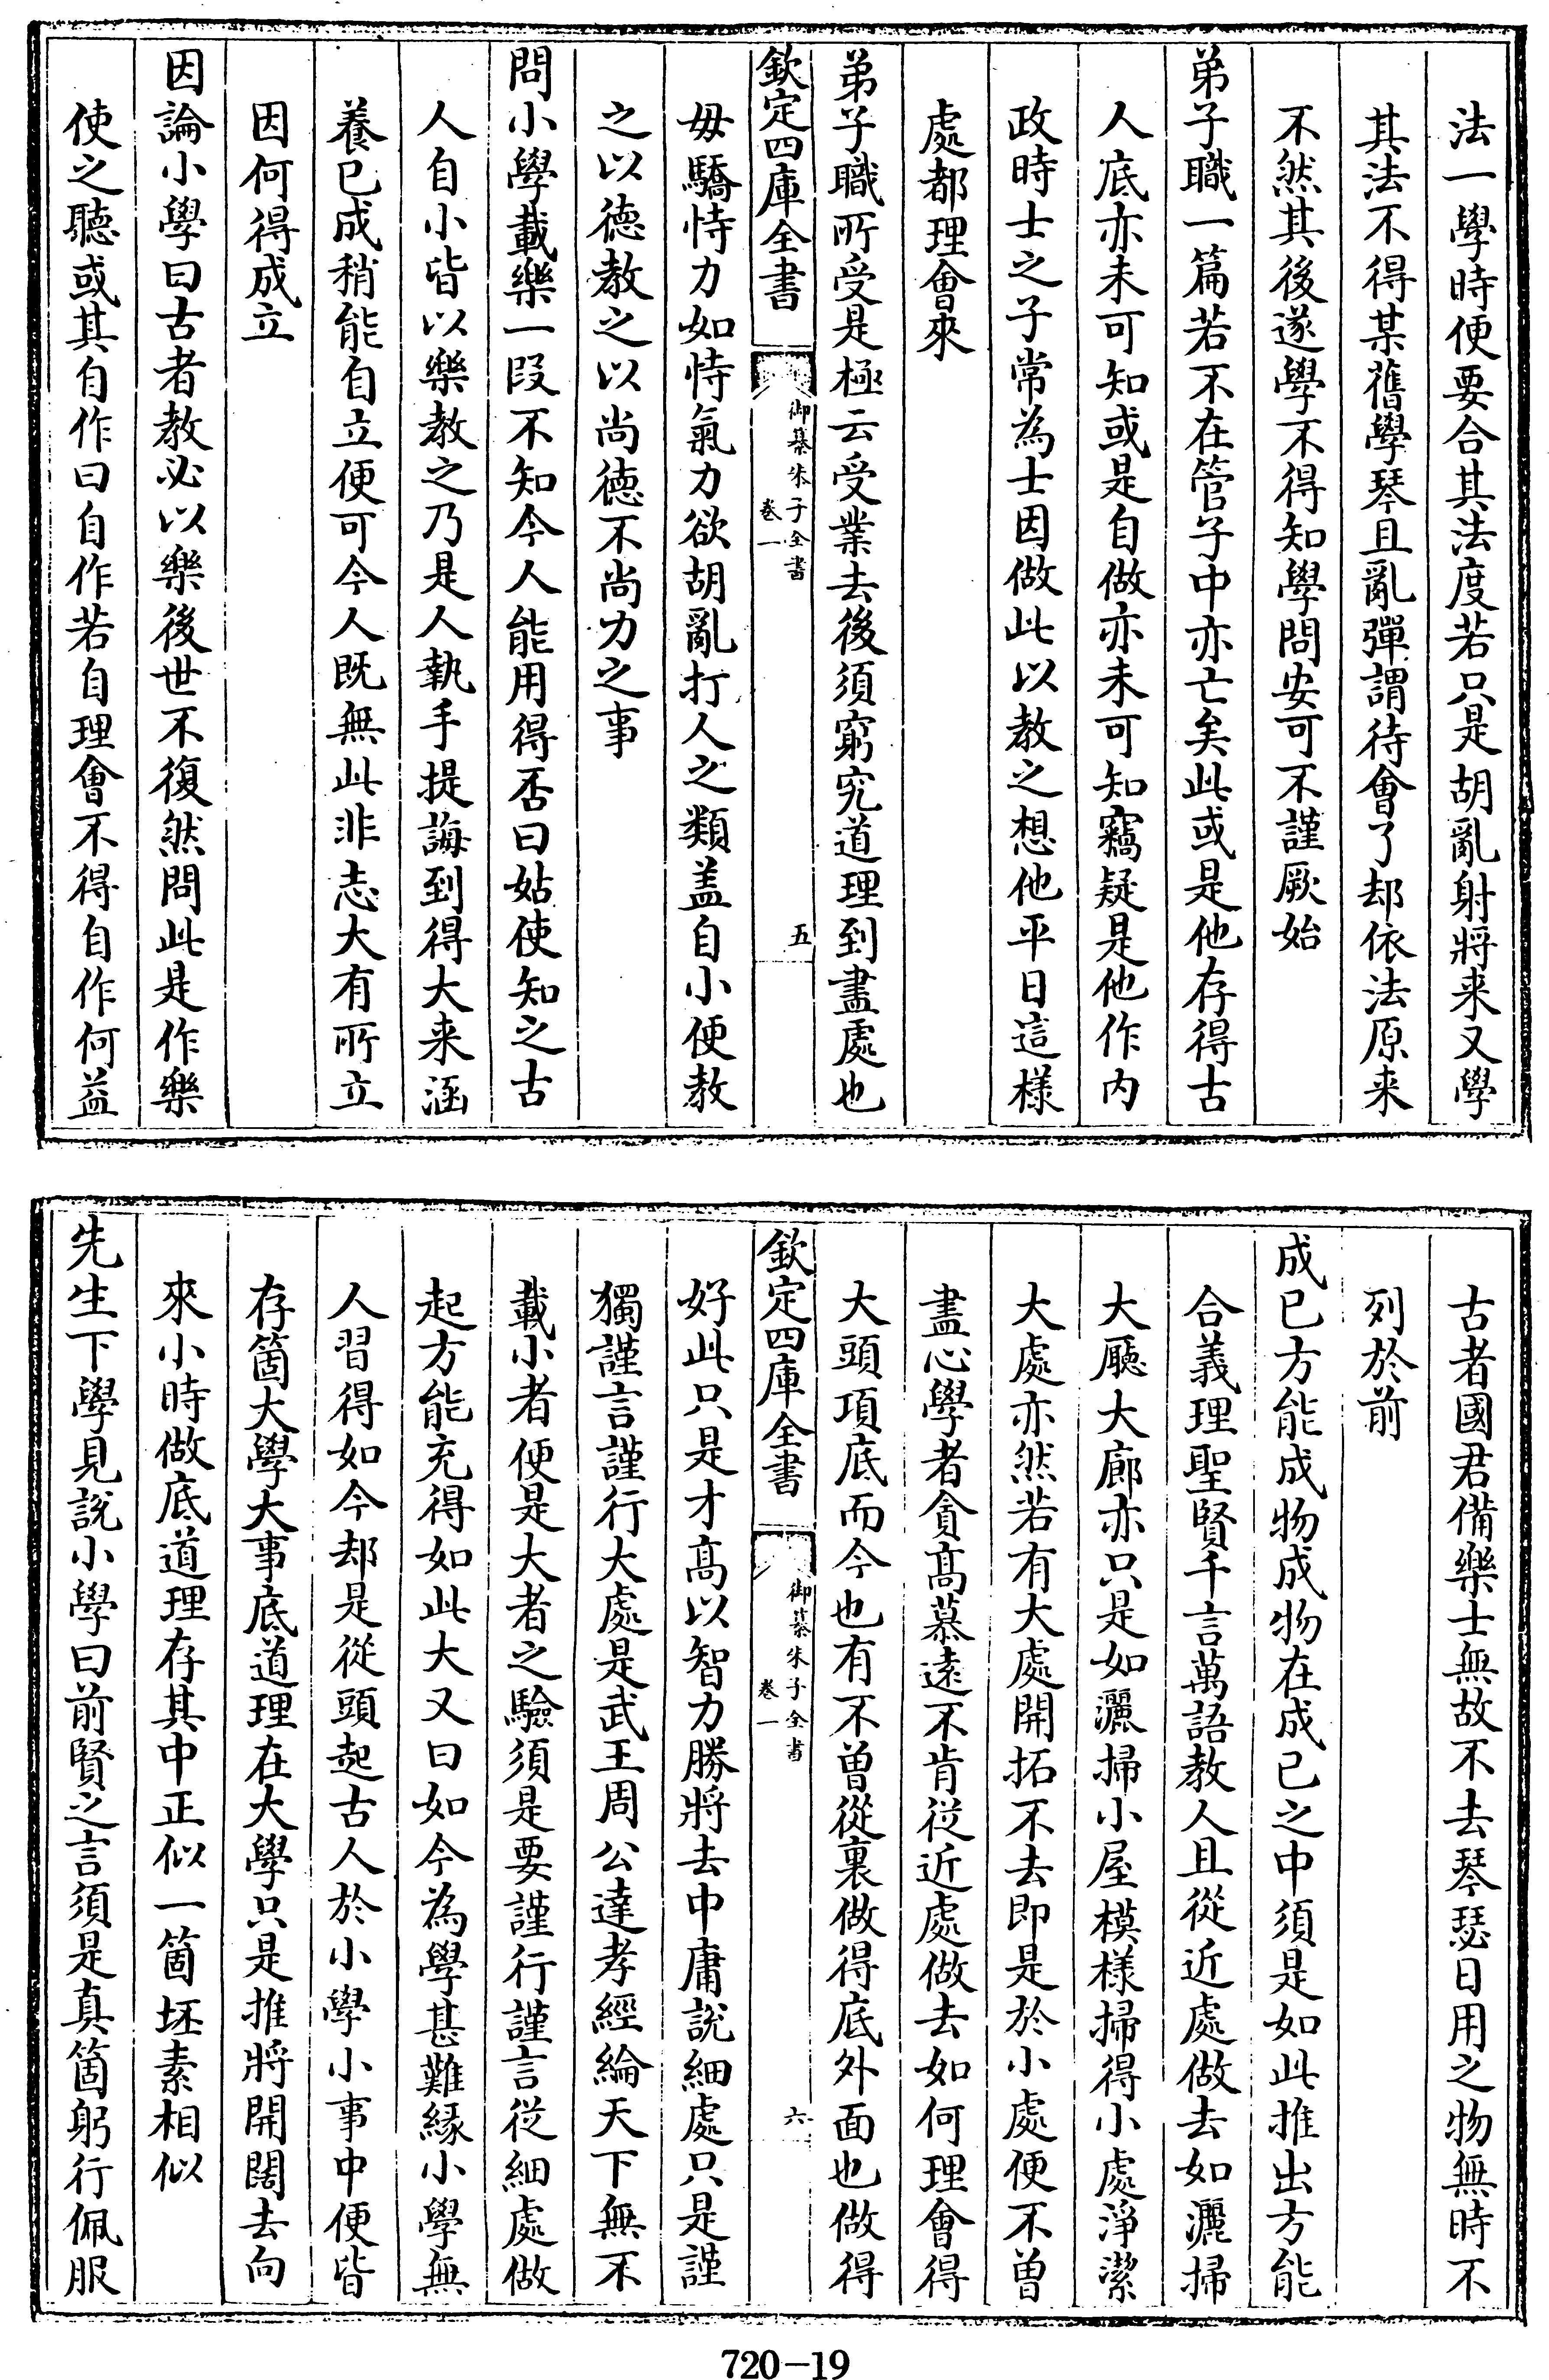 法一學時便要合其法度若只是胡亂射將来又學
其法不得某舊學琴且亂彈謂待會了却依法原来
不然其後遂學不得知學問安可不謹厥始
弟子職一篇若不在管子中亦亡矣此或是他存得古
人底亦未可知或是自做亦未可知竊疑是他作内
政時士之子常為士因做此以教之想他平日這様
處都理會來
弟子職所受是極云受業去後須窮究道理到盡處也
欽定四庫全書
御纂朱子全書
卷一
五
毋驕恃力如恃氣力欲胡亂打人之類盖自小便教
之以徳教之以尚徳不尚力之事
問小學載樂一段不知今人能用得否曰姑使知之古
人自小皆以樂教之乃是人執手提誨到得大来涵
養已成稍能自立便可今人既無此非志大有所立
因何得成立
因論小學曰古者教必以樂後世不復然問此是作樂
使之聽或其自作曰自作若自理會不得自作何益
古者國君備樂士無故不去琴瑟日用之物無時不
列於前
成已方能成物成物在成已之中須是如此推出方能
合義理聖賢千言萬語教人且從近處做去如灑掃
大廳大廊亦只是如灑掃小屋模様掃得小處淨潔
大處亦然若有大處開拓不去即是於小處便不曽
盡心學者貪髙慕遠不肯從近處做去如何理會得
大頭項底而今也有不曽從裏做得底外面也做得
欽定四庫全書
御纂朱子全書
卷一
六
好此只是才髙以智力勝將去中庸說細處只是謹
獨謹言謹行大處是武王周公達孝經綸天下無不
載小者便是大者之驗須是要謹行謹言從細處做
起方能充得如此大又曰如今為學甚難縁小學無
人習得如今却是從頭起古人於小學小事中便皆
存箇大學大事底道理在大學只是推將開闊去向
來小時做底道理存其中正似一箇坯素相似
先生下學見說小學曰前賢之言須是真箇躬行佩服
720-19